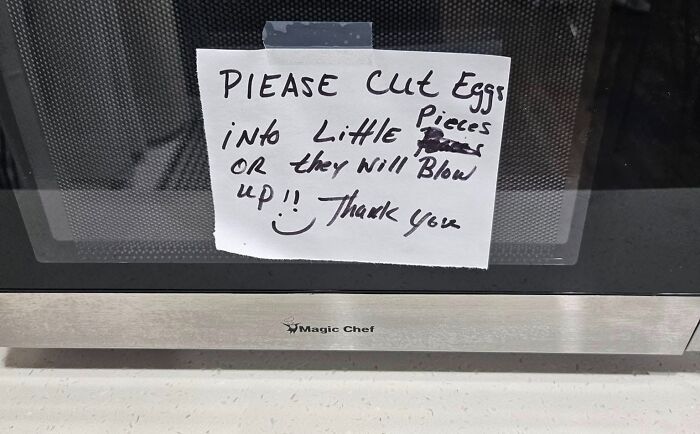 PlEASE Cut Eggs
into Little Pieces
OR they Will Blow
up!! Thank you
Magic Chef